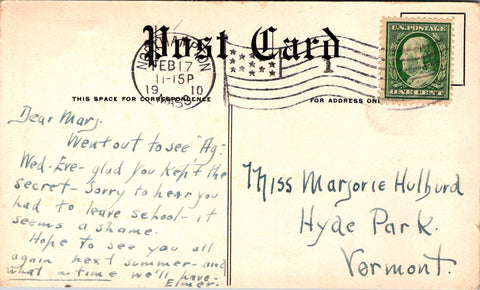 Post Card
NORTHAMPTON
FEB 17
11-15P
19 10
MASS.
U.S. POSTAGE
ONE CENT
THIS SPACE FOR CORRESPONDENCE
FOR ADDRESS ONL
Dear Marj.
Went out to see "Ag."
Wed. Eve - glad you kept the
secret - Sorry to hear you
had to leave school - it
seems a shame.
Hope to see you all
again next summer - and
what a time we'll have -
Elmer.
Miss Marjorie Hulburd
Hyde Park.
Vermont.